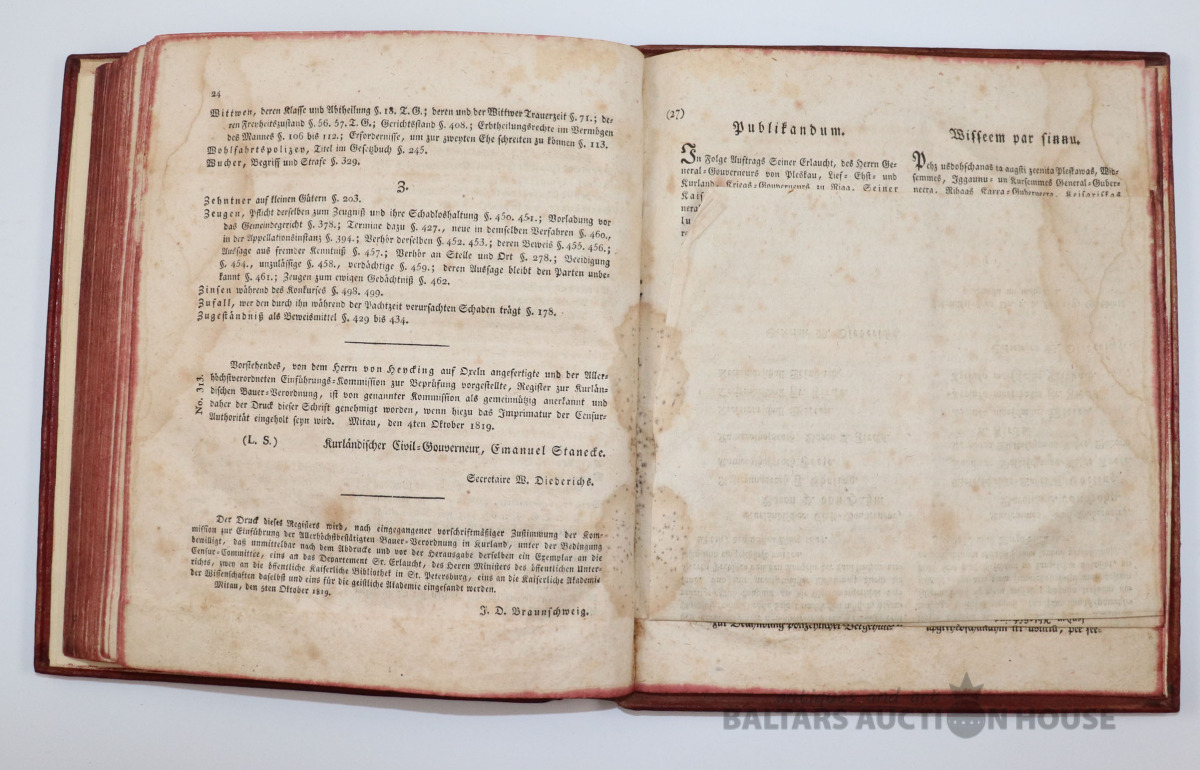 24
Wittwen, deren Klasse und Abtheilung §. 18. T. G.; deren und der Wittwer Trauerzeit §. 71.; de-
ren Freyheitszustand §. 56. 57. T. G.; Gerichtsstand §. 408.; Erbtheilungsrechte im Vermögen
des Mannes §. 106 bis 112.; Erfordernisse, um zur zweyten Ehe schreiten zu können §. 113.
Wohlfahrtspolizey, Titel im Gesetzbuch §. 245.
Wucher, Begriff und Strafe §. 329.
Z.
Zehntner auf kleinen Gütern §. 203.
Zeugen, Pflicht derselben zum Zeugniß und ihre Schadloshaltung §. 450. 451.; Vorladung vor
das Gemeindegericht §. 378.; Termine dazu §. 427., neue in demselben Verfahren §. 460.,
in der Appellationsinstanz §. 394.; Verhör derselben §. 452. 453.; deren Beweis §. 455. 456.;
Aussage aus fremder Kenntniß §. 457.; Verhör an Stelle und Ort §. 278.; Beeidigung
§. 454., unzulässige §. 458., verdächtige §. 459.; deren Aussage bleibt den Parten unbe-
kannt §. 461.; Zeugen zum ewigen Gedächtniß §. 462.
Zinsen während des Konkurses §. 498. 499.
Zufall, wer den durch ihn während der Pachtzeit verursachten Schaden trägt §. 178.
Zugeständniß als Beweismittel §. 429 bis 434.
No. 313.
Vorstehendes, von dem Herrn von Heycking auf Oxeln angefertigte und der Aller-
höchstverordneten Einführungs-Kommission zur Beprüfung vorgestellte, Register zur Kurlän-
dischen Bauer-Verordnung, ist von genannter Kommission als gemeinnützig anerkannt und
daher der Druck dieser Schrift genehmigt worden, wenn hiezu das Imprimatur der Censur-
Authorität eingeholt seyn wird. Mitau, den 4ten Oktober 1819.
(L. S.) Kurländischer Civil-Gouverneur, Emanuel Stanecke.
Secretaire W. Diederichs.
Der Druck dieses Registers wird, nach eingegangener vorschriftmäßiger Zustimmung der Kom-
mission zur Einführung der Allerhöchstbestätigten Bauer-Verordnung in Kurland, unter der Bedingung
bewilligt, daß unmittelbar nach dem Abdrucke und vor der Herausgabe derselben ein Exemplar an die
Censur-Committee, eins an das Departement Sr. Erlaucht, des Herrn Ministers des öffentlichen Unter-
richts, zwey an die öffentliche Kaiserliche Bibliothek in St. Petersburg, eins an die Kaiserliche Akademie
der Wissenschaften daselbst und eins für die geistliche Akademie eingesandt werden.
Mitau, den 5ten Oktober 1819.
J. D. Braunschweig.
(27)
Publikandum.
In Folge Auftrags Seiner Erlaucht, des Herrn Ge-
neral-Gouverneurs von Pleskau, Lief- Ehst- und
Kurland, Kriegs-Gouverneurs zu Riga, Seiner
Kais
Wisseem par sinnu.
Pehz usdohschanas ta augsti zeenita Pleskawas, Wid-
semmes, Iggaunu- un Kursemmes General-Guber-
BALTARS AUCTION HOUSE